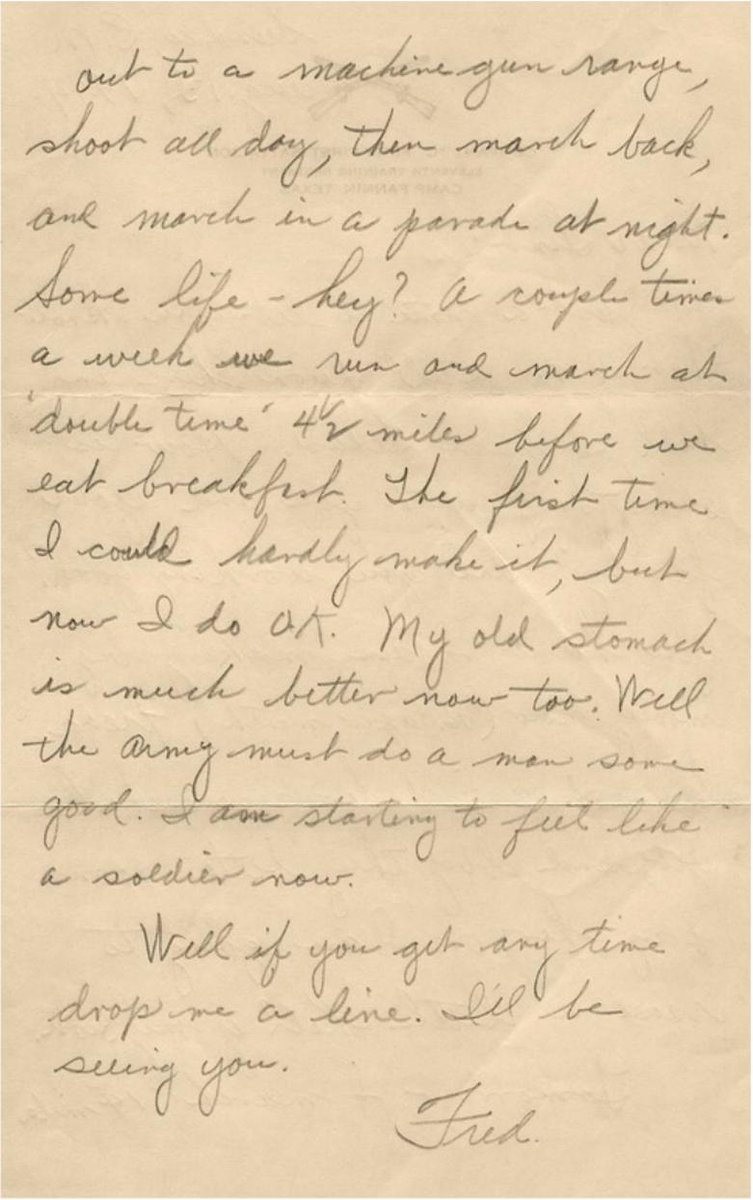 out to a machine gun range,
shoot all day, then march back,
and march in a parade at night.
Some life - hey? A couple times
a week we run and march at
'double time' 4½ miles before we
eat breakfast. The first time
I could hardly make it, but
now I do O.K. My old stomach
is much better now too. Well
the Army must do a man some
good. I am starting to feel like
a soldier now.
Well if you get any time
drop me a line. I'll be
seeing you.
Fred.